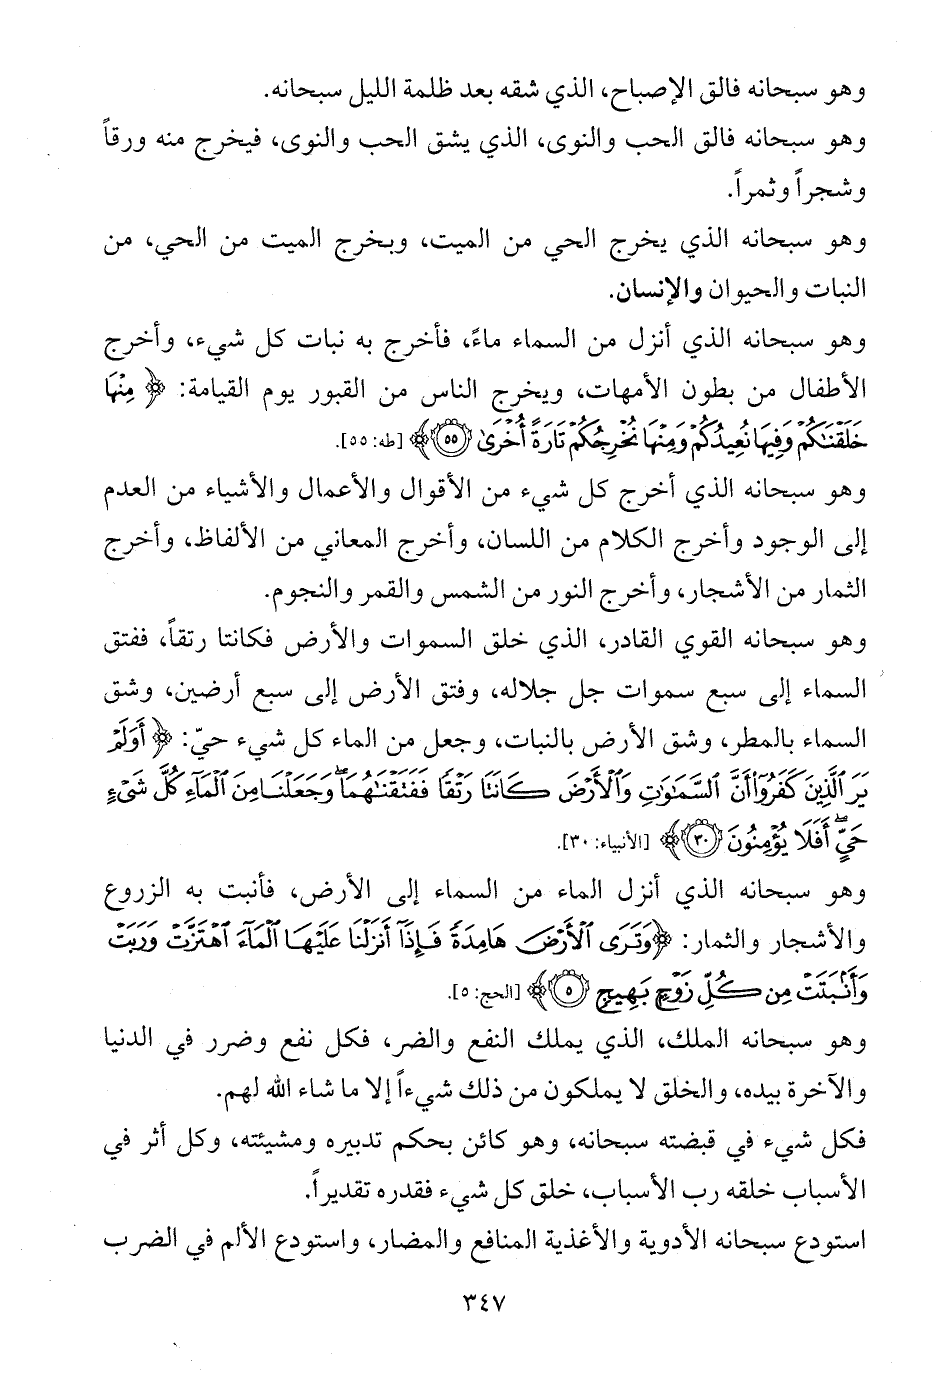 وهو سبحانه فالق الإصباح، الذي شقه بعد ظلمة الليل سبحانه.
وهو سبحانه فالق الحب والنوى، الذي يشق الحب والنوى، فيخرج منه ورقاً
وشجراً وثمراً.
وهو سبحانه الذي يخرج الحي من الميت، ويخرج الميت من الحي، من
النبات والحيوان والإنسان.
وهو سبحانه الذي أنزل من السماء ماءً، فأخرج به نبات كل شيء، وأخرج
الأطفال من بطون الأمهات، ويخرج الناس من القبور يوم القيامة: ﴿ مِنْهَا
خَلَقْنَٰكُمْ وَفِيهَا نُعِيدُكُمْ وَمِنْهَا نُخْرِجُكُمْ تَارَةً أُخْرَىٰ ۝٥٥ ﴾ [طه: ٥٥].
وهو سبحانه الذي أخرج كل شيء من الأقوال والأعمال والأشياء من العدم
إلى الوجود وأخرج الكلام من اللسان، وأخرج المعاني من الألفاظ، وأخرج
الثمار من الأشجار، وأخرج النور من الشمس والقمر والنجوم.
وهو سبحانه القوي القادر، الذي خلق السموات والأرض فكانتا رتقاً، ففتق
السماء إلى سبع سموات جل جلاله، وفتق الأرض إلى سبع أرضين، وشق
السماء بالمطر، وشق الأرض بالنبات، وجعل من الماء كل شيء حيّ: ﴿ أَوَلَمْ
يَرَ ٱلَّذِينَ كَفَرُوٓا۟ أَنَّ ٱلسَّمَٰوَٰتِ وَٱلْأَرْضَ كَانَتَا رَتْقًا فَفَتَقْنَٰهُمَا ۖ وَجَعَلْنَا مِنَ ٱلْمَآءِ كُلَّ شَىْءٍ
حَىٍّ ۖ أَفَلَا يُؤْمِنُونَ ۝٣٠ ﴾ [الأنبياء: ٣٠].
وهو سبحانه الذي أنزل الماء من السماء إلى الأرض، فأنبت به الزروع
والأشجار والثمار: ﴿ وَتَرَى ٱلْأَرْضَ هَامِدَةً فَإِذَآ أَنزَلْنَا عَلَيْهَا ٱلْمَآءَ ٱهْتَزَّتْ وَرَبَتْ
وَأَنۢبَتَتْ مِن كُلِّ زَوْجٍۭ بَهِيجٍ ۝٥ ﴾ [الحج: ٥].
وهو سبحانه الملك، الذي يملك النفع والضر، فكل نفع وضرر في الدنيا
والآخرة بيده، والخلق لا يملكون من ذلك شيءاً إلا ما شاء الله لهم.
فكل شيء في قبضته سبحانه، وهو كائن بحكم تدبيره ومشيئته، وكل أثر في
الأسباب خلقه رب الأسباب، خلق كل شيء فقدره تقديراً.
استودع سبحانه الأدوية والأغذية المنافع والمضار، واستودع الألم في الضرب
٣٤٧